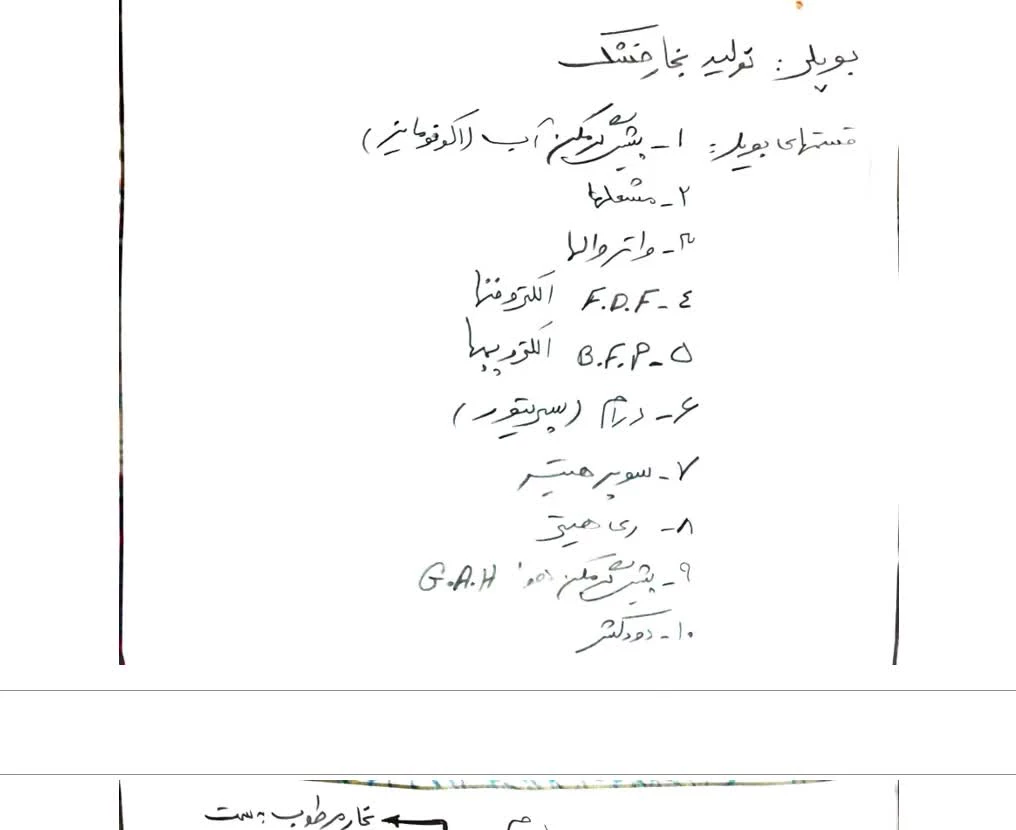 بویلر: تولید بخار خشک
قسمتهای بویلر: ۱- پیش گرمکن آب (اکونومایزر)
۲- مشعلها
۳- واتروالها
۴- F.D.F الکتروفنها
۵- B.F.P الکتروپمپها
۶- درام (سپریتور)
۷- سوپر هیتر
۸- ری هیتر
۹- پیش گرمکن هوا G.A.H
۱۰- دودکش
بخار مرطوب به سمت